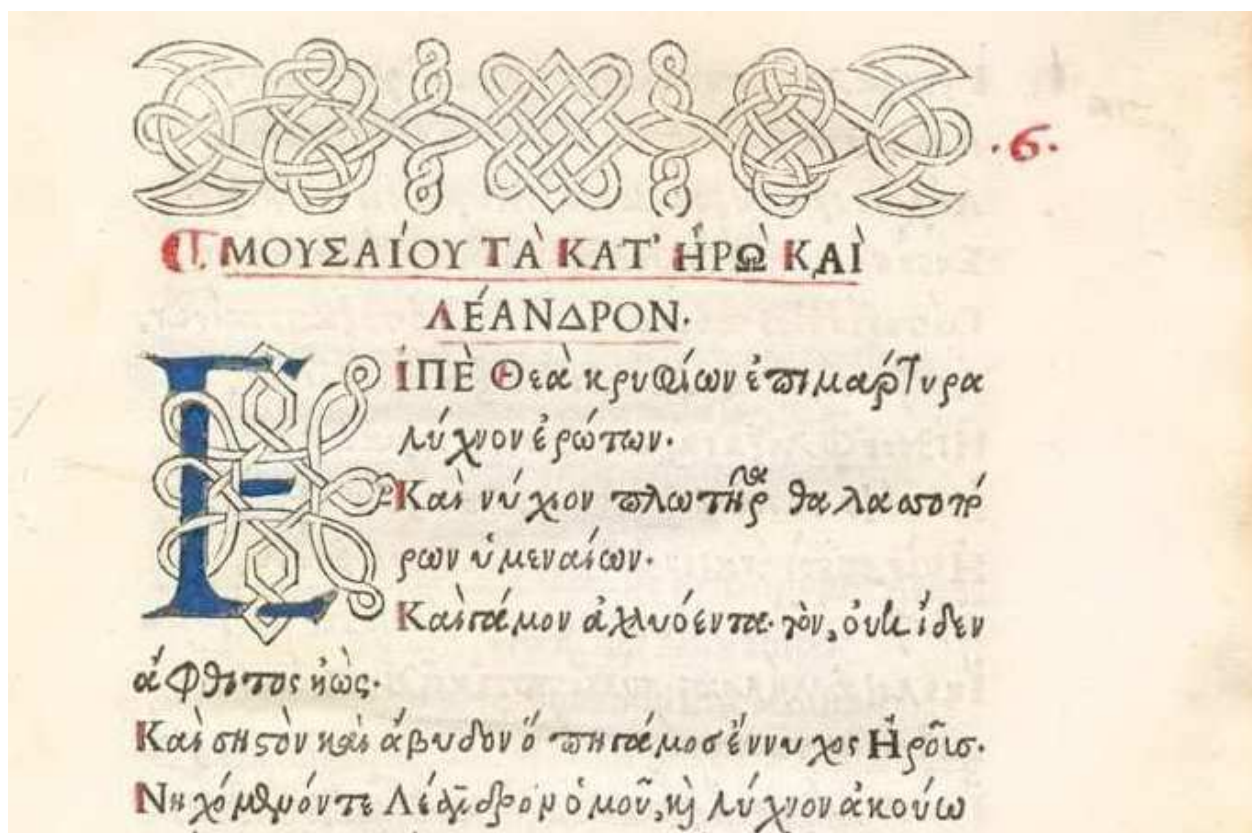 ·6·
ΜΟΥΣΑΊΟΥ ΤᾺ ΚΑΤ' ἩΡῺ ΚΑῚ
ΛΈΑΝΔΡΟΝ.
ΕἸΠῈ Θεὰ κρυφίων ἐπιμάρτυρα
λύχνον ἐρώτων.
Καὶ νύχιον πλωτῆρα θαλασσοπό
ρων ὑμεναίων.
Καὶ γάμον ἀχλυόεντα. τὸν, οὐκ ἴδεν
ἄφθιτος ἠὼς.
Καὶ σηστὸν καὶ ἄβυδον ὅπη γάμος ἔννυχος Ἡροῦς.
Νηχόμενόν τε Λέανδρον ὁμοῦ, καὶ λύχνον ἀκούω